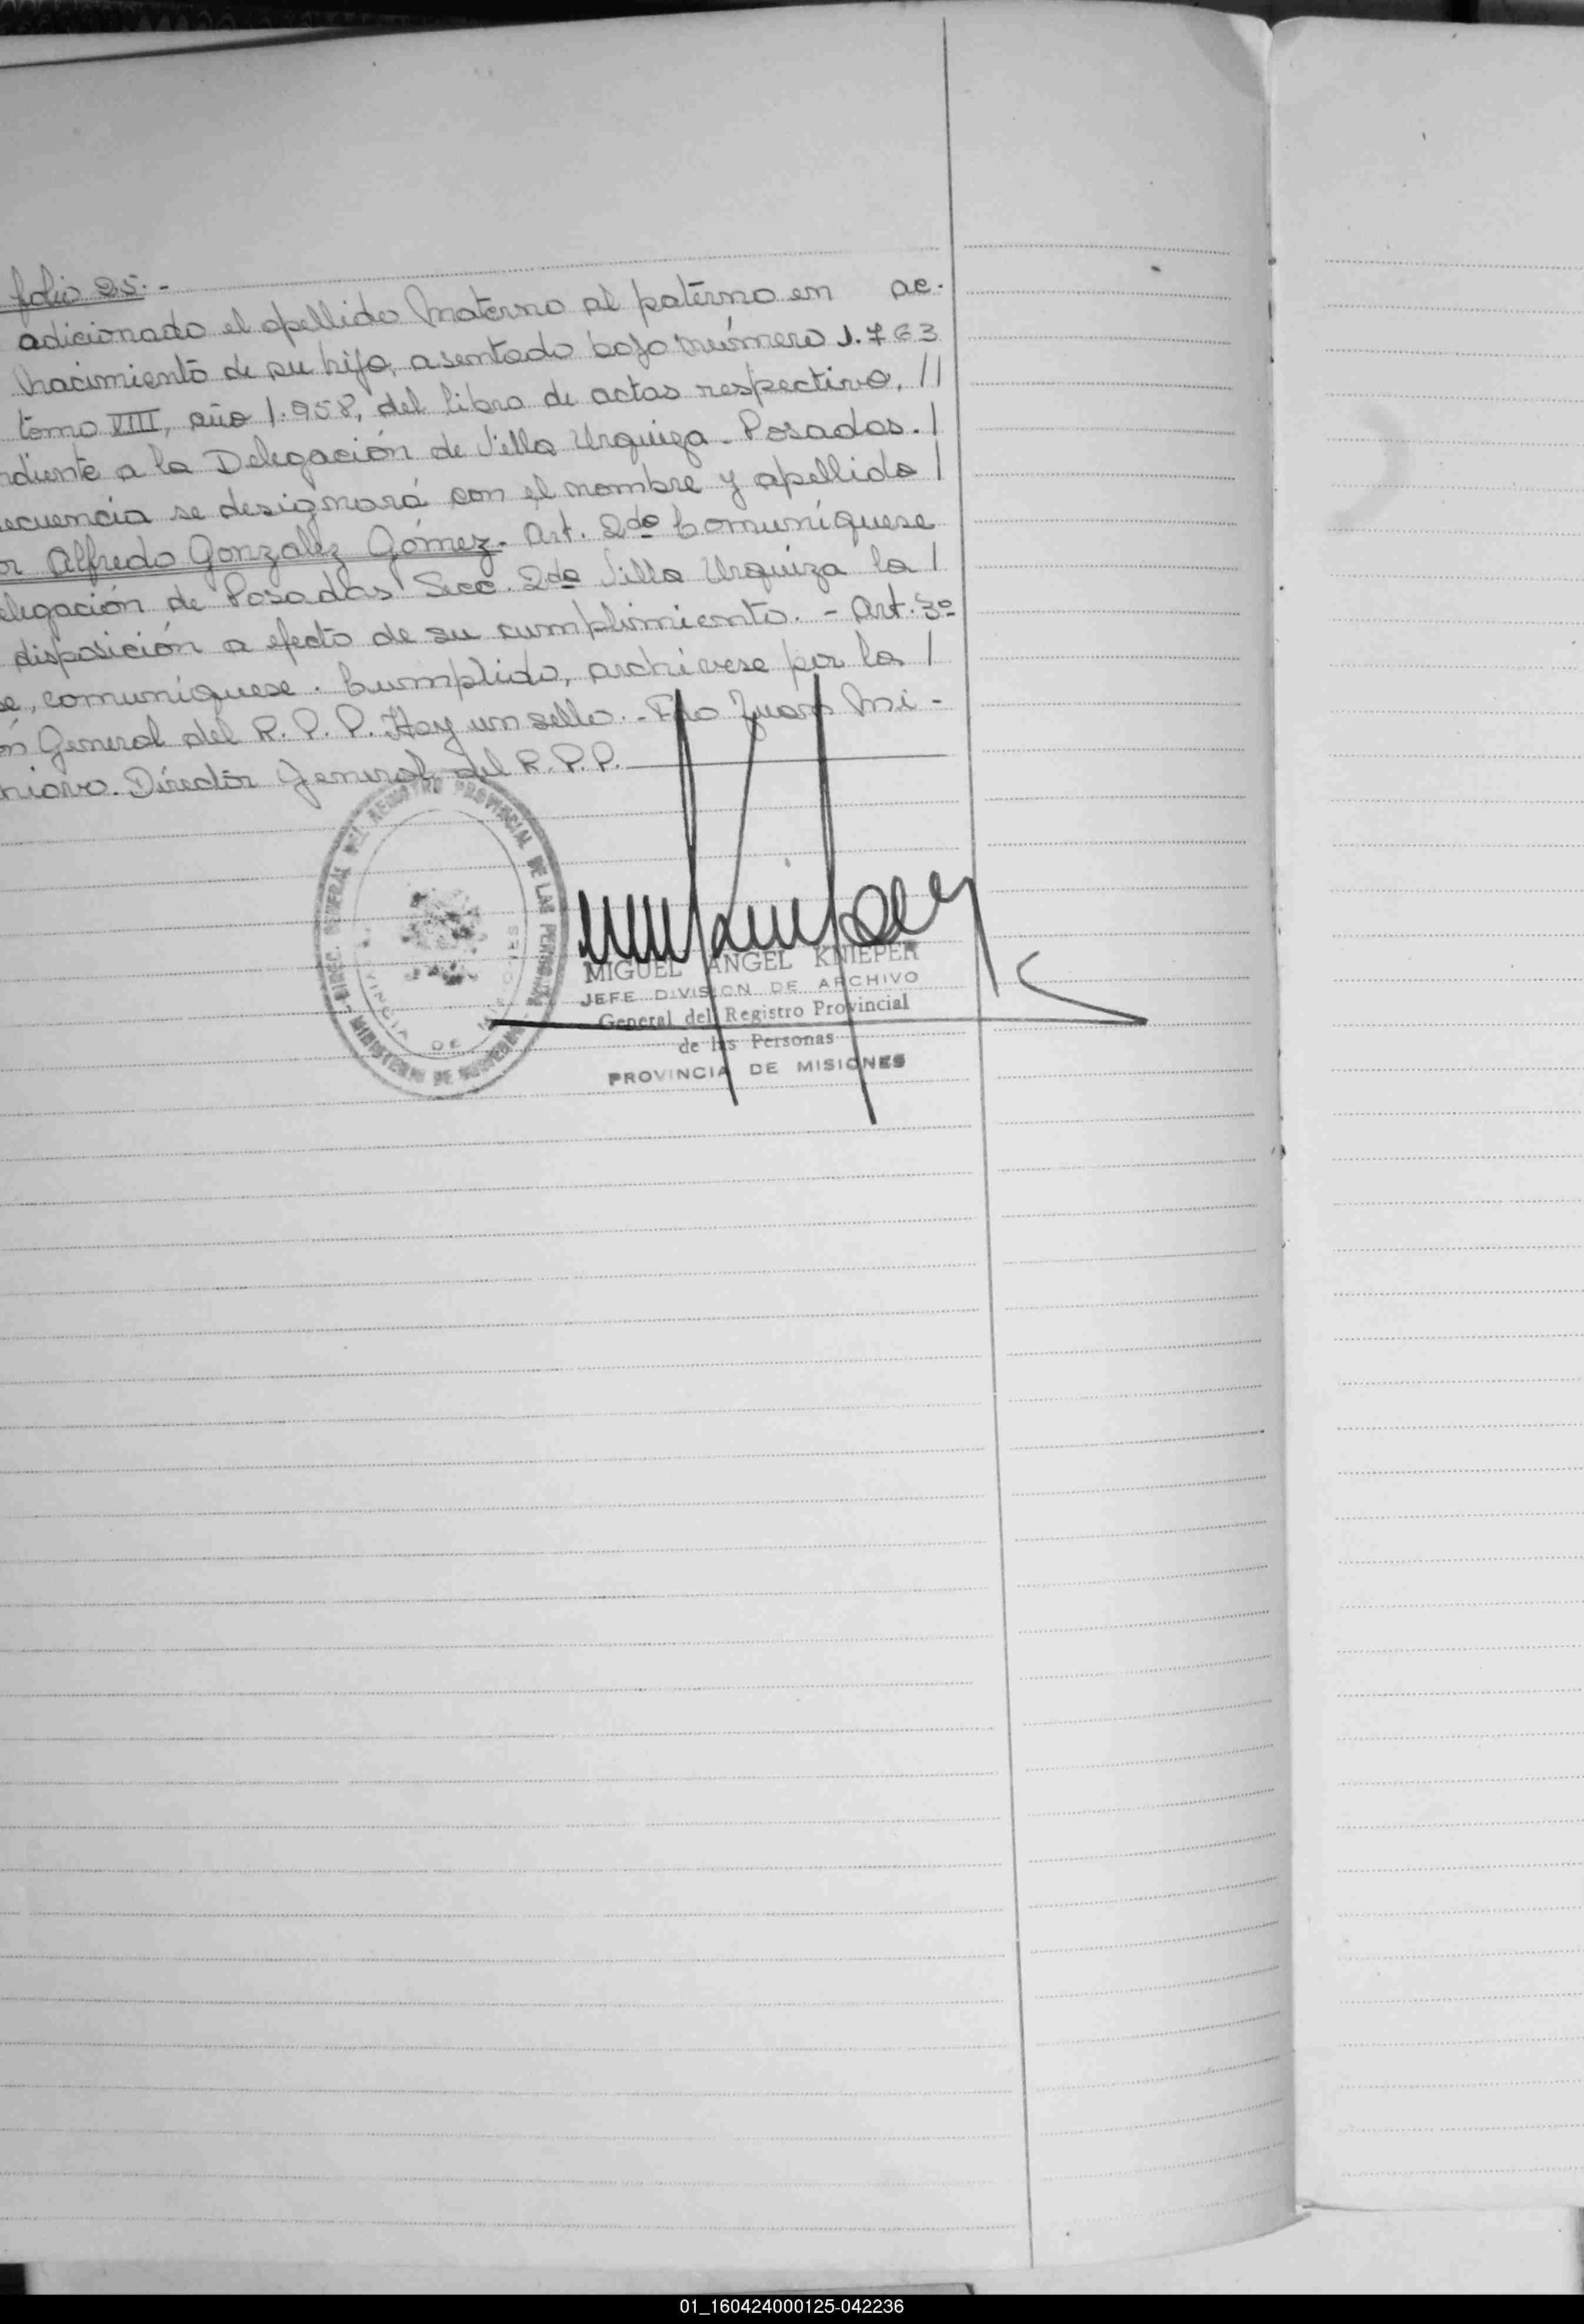 folio 25.-
adicionado el apellido Materno al paterno en ac.
Nacimiento de su hijo, asentado bajo número 1.763
tomo VIII, año 1.958, del libro de actas respectivo, //
ndiente a la Delegación de Villa Urquiza - Posadas. /
ecuencia se designará con el nombre y apellido /
or Alfredo Gonzalez Gómez. - Art. 2do Comuníquese
elegación de Posadas Secc. 2da Villa Urquiza la /
disposición a efecto de su cumplimiento. - Art. 3º
se, comuníquese. Cumplido, archivese por la /
ón General del R. P. P. Hay un sello. - Fdo Juan Mi -
niavo. Director General del R.P.P.
DIREC. GENERAL DEL REGISTRO PROVINCIAL DE LAS PERSONAS
MINISTERIO DE GOBIERNO
PROVINCIA DE MISIONES
MIGUEL ANGEL KNIEPER
JEFE DIVISION DE ARCHIVO
General del Registro Provincial
de las Personas
PROVINCIA DE MISIONES
01_160424000125-042236